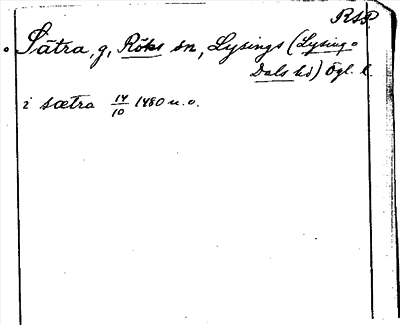 RSP
Sätra, g, Röks sn, Lysings (Lysing o
Dals hd) Ögl. l.
i sætra 14/10 1480 u. o.